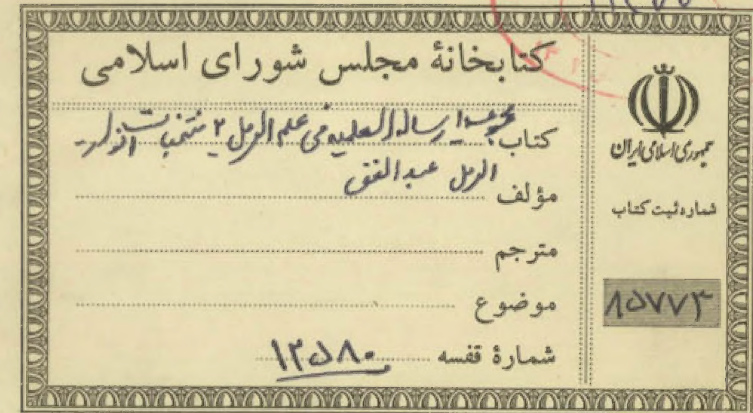 کتابخانهٔ مجلس شورای اسلامی
کتاب: مجموعه ۱ رساله العلمیه فی علم الرمل ۲ منتخبات
الرمل عبدالغنی
مؤلف
مترجم
موضوع
شمارهٔ قفسه ۱۲۵۸۰
جمهوری اسلامی ایران
شماره ثبت کتاب
۸۵۷۷۳